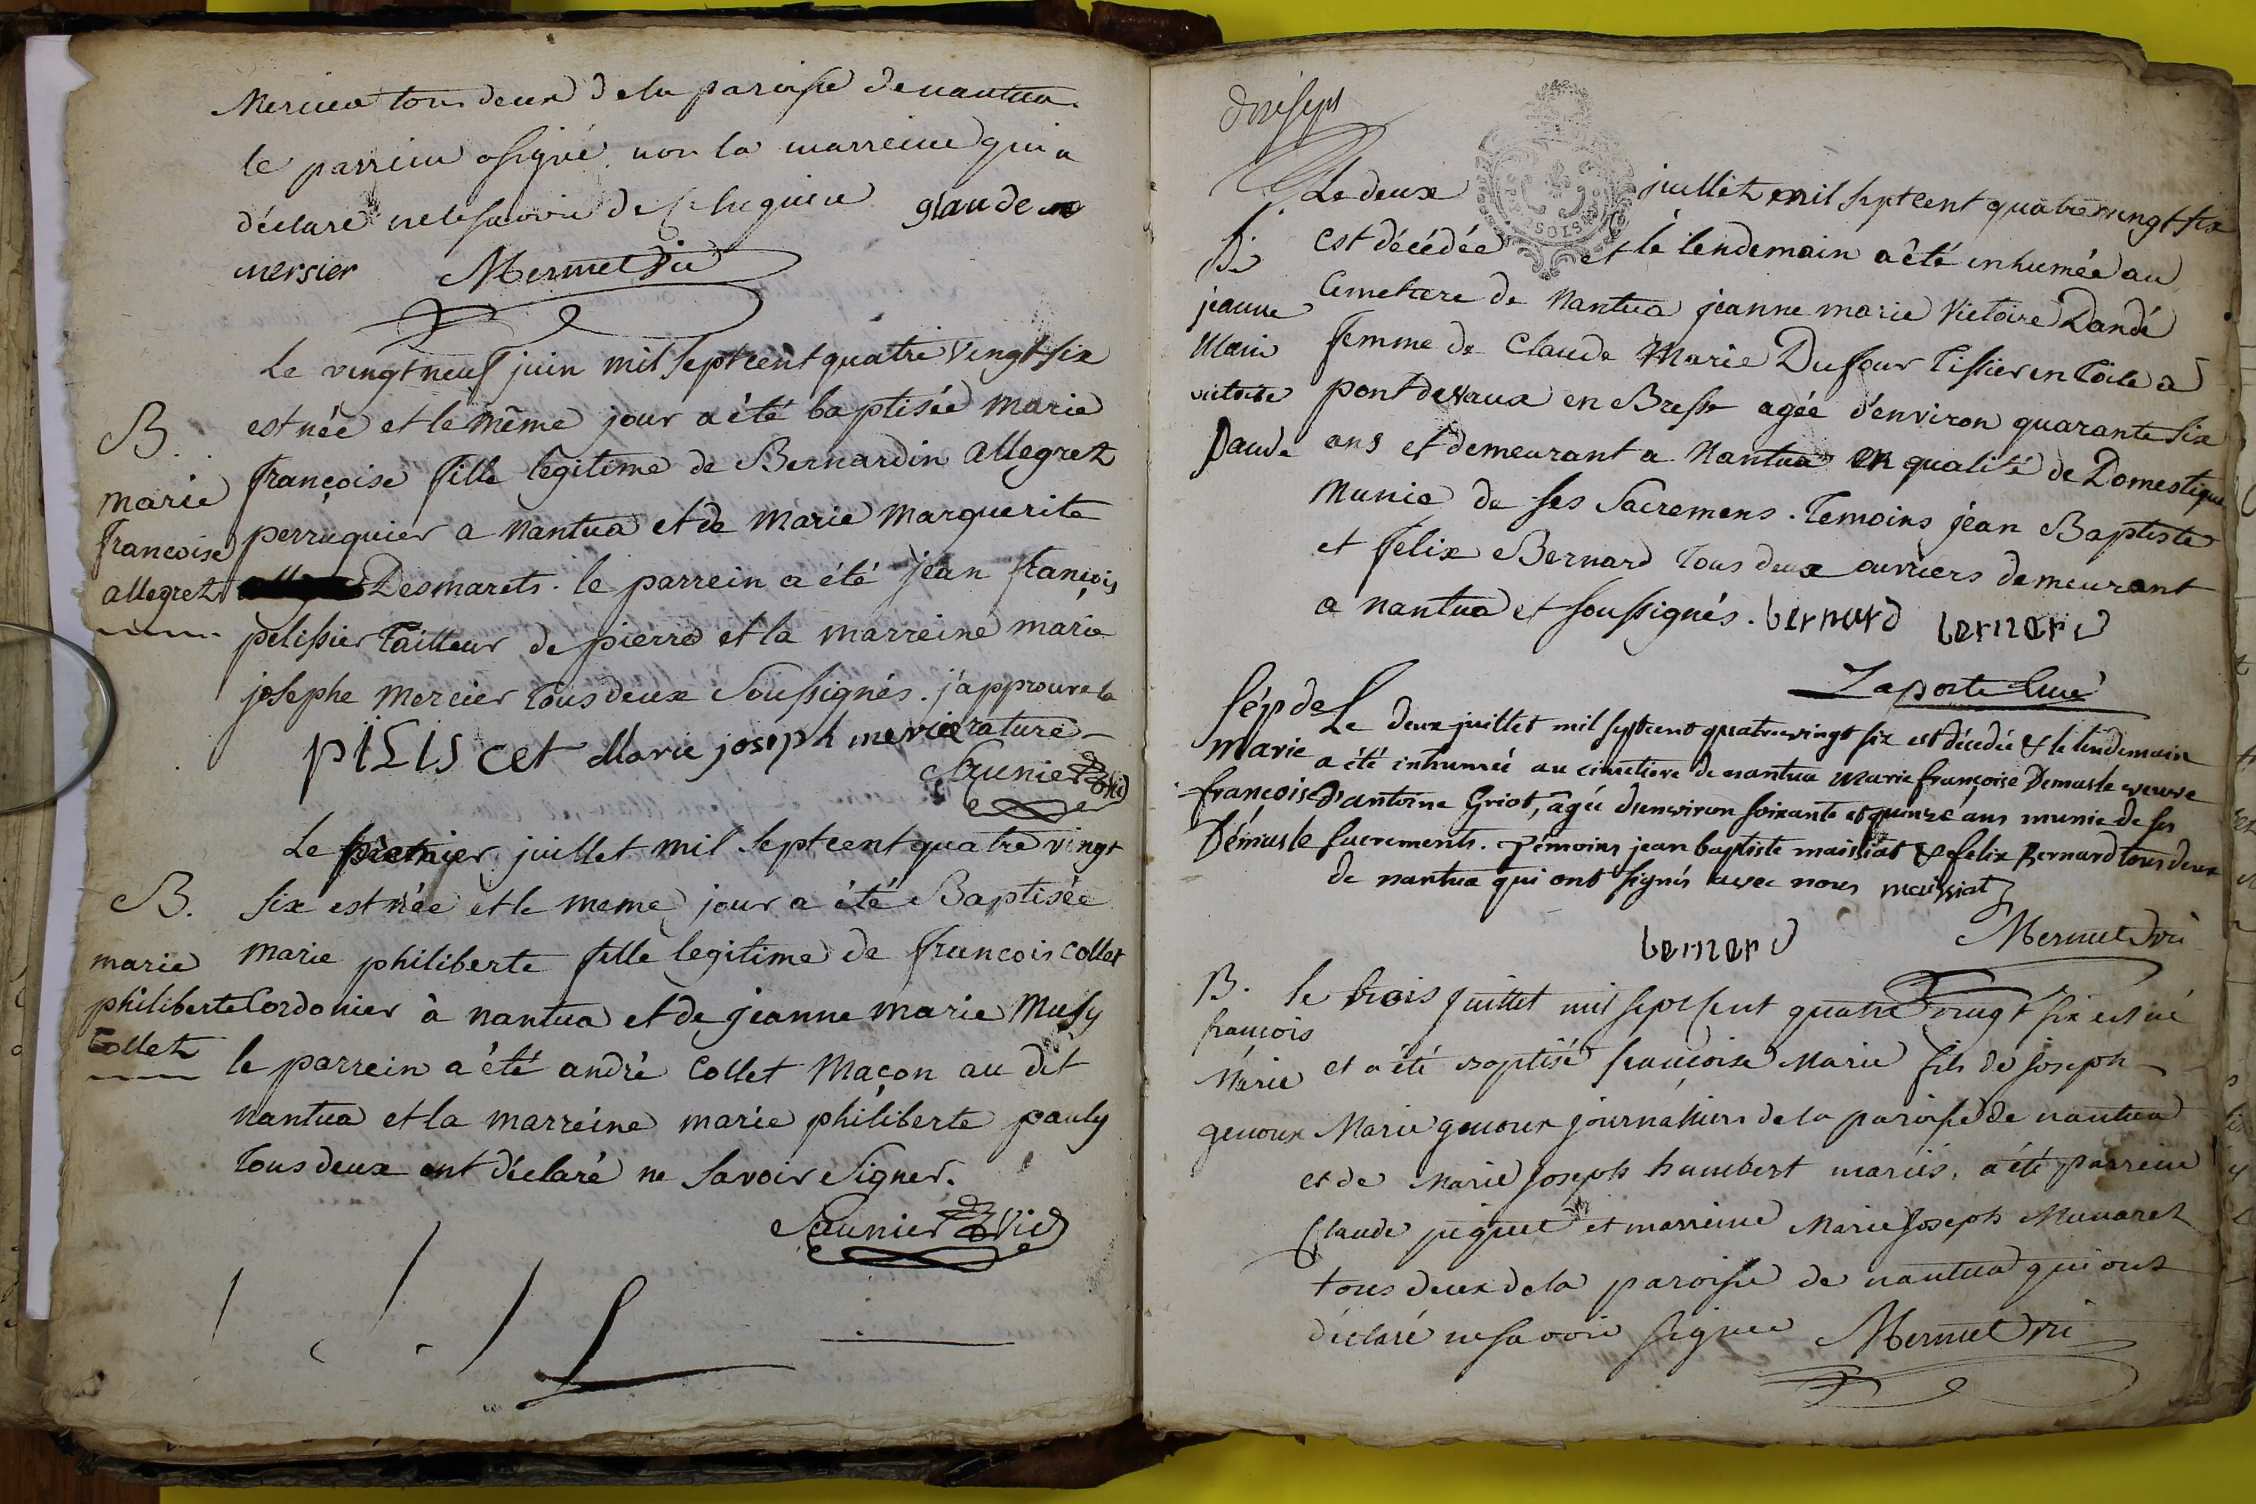 Mercier tous deux de la paroisse de nantua
le parrein a signé non la marreine qui a
déclaré ne le savoir de ce enquise glaude
mersier Mermet vic
Le vingt neuf juin mil sept cent quatre vingt six
B. est née et le même jour a été baptisée marie
marie françoise fille legitime de Bernardin allegret
francoise perruquier a nantua et de marie marguerite
allegret Desmarets. le parrein a été jean françois
pelissier Tailleur de pierre et la marreine marie
josephe mercier tous deux soussignés. j'approuve la
rature
piliscet Marie joseph mercier
Saunier vic
Le premier juillet mil sept cent quatre vingt
B. six est née et le meme jour a été Baptisée
marie marie philiberte fille legitime de francois collet
philiberte Cordonier à nantua et de jeanne marie Musy
Collet le parrein a été andré Collet Maçon au dit
nantua et la marreine marie philiberte pauly
tous deux ont déclaré ne savoir signer.
Saunier vic
dixsept
Le deux juillet mil sept cent quatre vingt six
S. est décédée et le lendemain a été inhumée au
jeanne Cemetiere de Nantua jeanne marie Victoire Dandé
Marie femme de Claude Marie Dufour Tissier en toile a
victoire pont de vaux en Bresse agée d'environ quarante six
Dande ans et demeurant a Nantua en qualité de Domestique
munie de ses Sacremens. Temoins jean Baptiste
et felix Bernard tous deux ouvriers demeurant
a nantua et soussignés. bernard bernard
Laporte Curé
Sép de Le deux juillet mil sept cent quatre vingt six est décedée & le lendemain
Marie a été inhumée au cimetiere de nantua Marie françoise Demusle veuve
françoise d'antoine Griot, âgée d'environ soixante et quinze ans munie de ses
Démusle sacrements. Témoins jean baptiste maissiat & felix Bernard tous deux
de nantua qui ont signés avec nous maissiat
bernard Mermet vic
B. le trois juillet mil sept sent quatre vingt six est né
francois et a été baptisé françoise Marie fils de joseph
Marie
genoux Marie genoux journahiers de la paroisse de nantua
et de Marie joseph humbert mariés, a été parreine
Claude piquet et marreine Marie joseph Munaret
tous deux de la paroisse de nantua qui ont
déclaré ne savoir signer Mermet vic